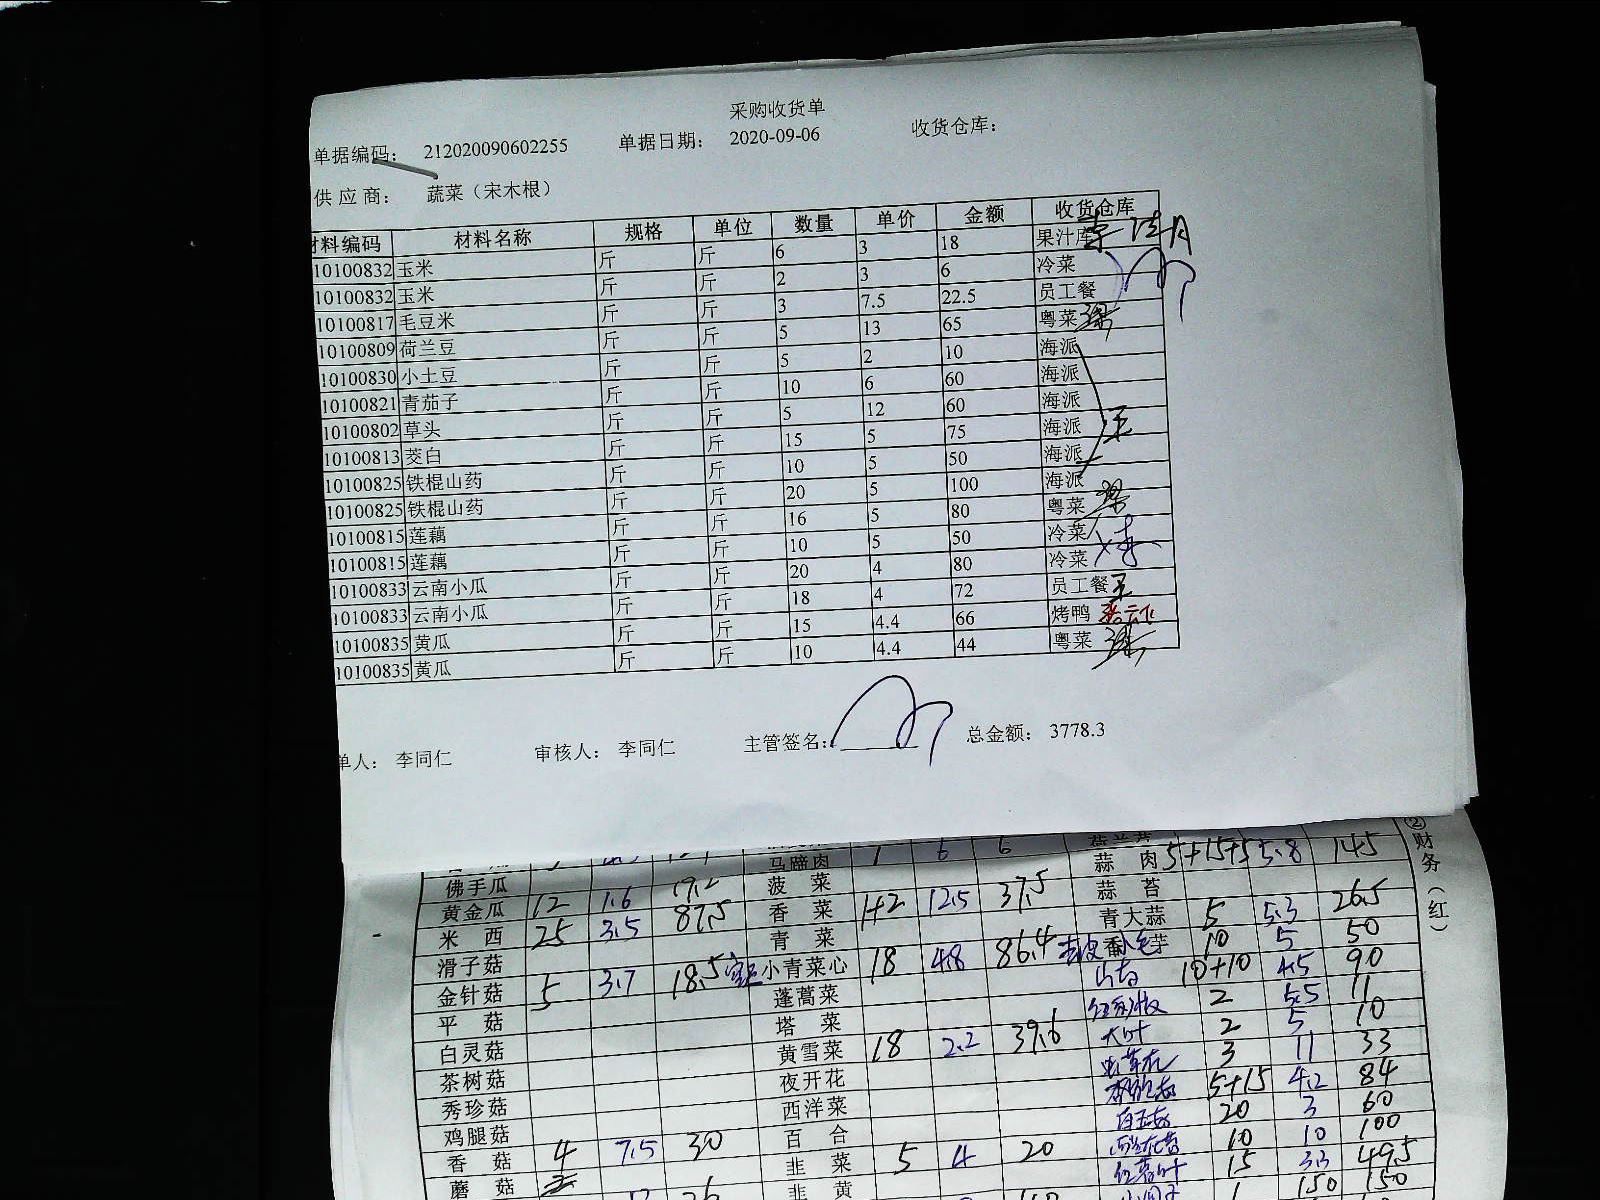 采购收货单
单据编码: 212020090602255 单据日期: 2020-09-06 收货仓库:
供应商: 蔬菜（宋木根）
材料编码 材料名称 规格 单位 数量 单价 金额 收货仓库
10100832 玉米 斤 斤 6 3 18 果汁库
10100832 玉米 斤 斤 2 3 6 冷菜
10100817 毛豆米 斤 斤 3 7.5 22.5 员工餐
10100809 荷兰豆 斤 斤 5 13 65 粤菜
10100830 小土豆 斤 斤 5 2 10 海派
10100821 青茄子 斤 斤 10 6 60 海派
10100802 草头 斤 斤 5 12 60 海派
10100813 茭白 斤 斤 15 5 75 海派
10100825 铁棍山药 斤 斤 10 5 50 海派
10100825 铁棍山药 斤 斤 20 5 100 海派
10100815 莲藕 斤 斤 16 5 80 粤菜
10100815 莲藕 斤 斤 10 5 50 冷菜
10100833 云南小瓜 斤 斤 20 4 80 冷菜
10100833 云南小瓜 斤 斤 18 4 72 员工餐 王
10100835 黄瓜 斤 斤 15 4.4 66 烤鸭
10100835 黄瓜 斤 斤 10 4.4 44 粤菜
单人: 李同仁 审核人: 李同仁 主管签名: 总金额: 3778.3
马蹄肉 1 6 6
佛手瓜 菠菜 蒜肉 5+15+5 5.8 145
黄金瓜 12 1.6 19.2 香菜 1+2 12.5 37.5 蒜苔
米西 25 3.5 87.5 青菜 青大蒜 5 5.3 26.5
滑子菇 小青菜心 18 4.8 86.4 10 5 50
金针菇 5 3.7 18.5 蓬蒿菜 10+10 4.5 90
平菇 塔菜 2 5.5 11
白灵菇 黄雪菜 18 2.2 39.6 大叶 2 5 10
茶树菇 夜开花 3 11 33
秀珍菇 西洋菜 5+15 4.2 84
鸡腿菇 百合 20 3 60
香菇 4 7.5 30 韭菜 5 4 20 10 10 100
蘑菇 韭黄 15 3.3 49.5
1 150 150
②财务（红）